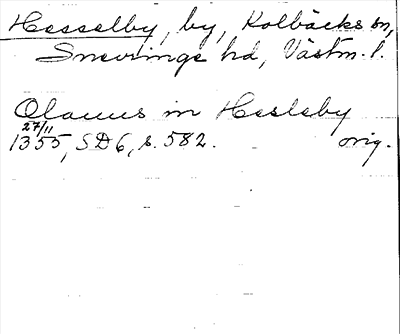 Hesselby, by, Kolbäcks sn,
Snevringe hd, Västm. l.
Olauus in Hesleby
27/11
1355, SD6, s. 582. orig.